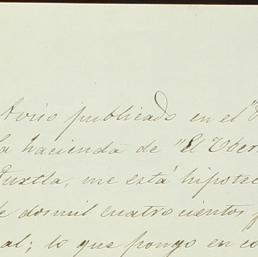 Aviso publicado en el
la hacienda de "El
Tuxtla, me está
de dosmil cuatrocientos
al; lo que pongo en